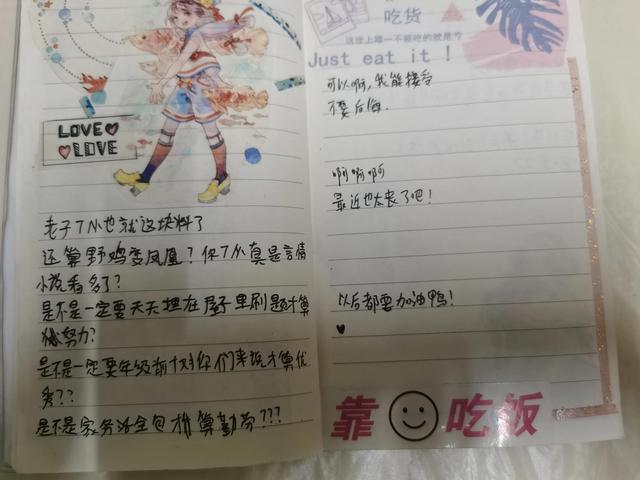 LOVE
LOVE
老子了不也就这块料了
还算野鸡变凤凰？你了不真是言情
小说看多了？
是不是一定要天天埋在屋子里刷题才算
努力？
是不是一定要年级前十对你们来说才算优
秀？？
是不是家务活全包揽算勤劳？？？
吃货
这世上唯一不能吃的就是亏
Just eat it !
可以啊，我能接受
不要后悔.
啊啊啊
最近也太丧了吧！
以后都要加油鸭！
靠 吃饭